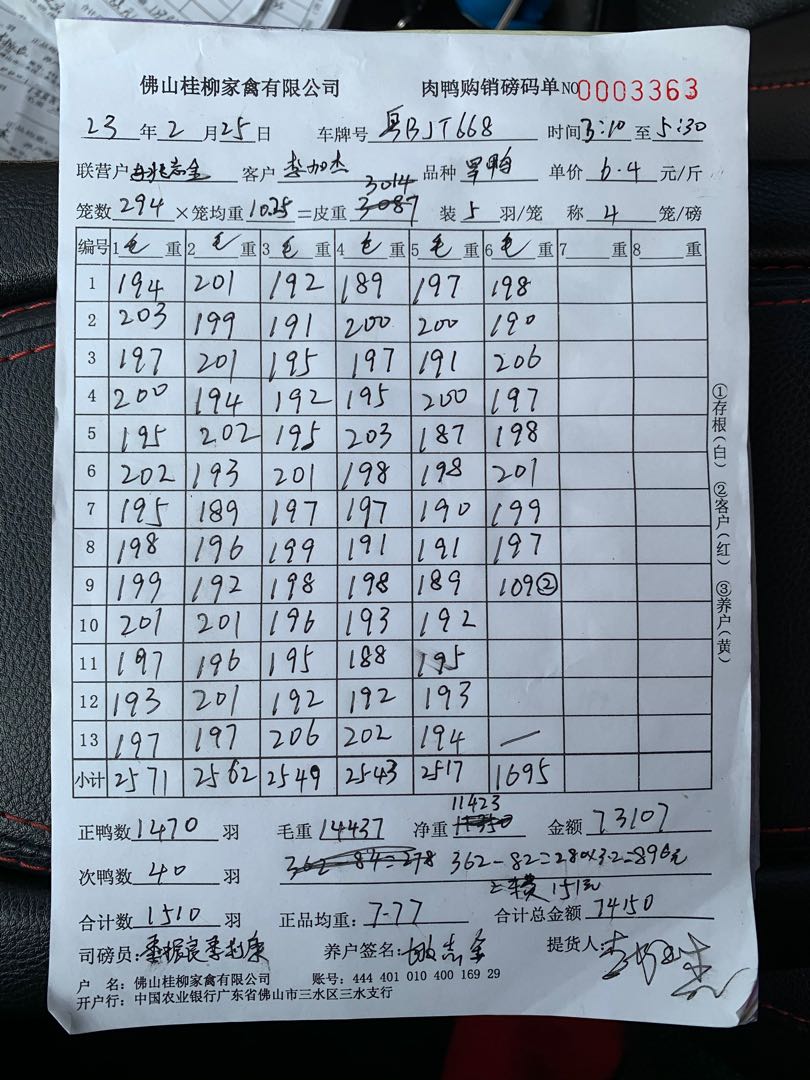 佛山桂柳家禽有限公司 肉鸭购销磅码单 NO 0003363
23 年 2 月 25 日 车牌号 粤BJT668 时间 3:10 至 5:30
联营户 志金 客户 李加杰 品种 单价 6.4 元/斤
笼数 294 ×笼均重 10.25 =皮重 3087 3014 装 5 羽/笼 称 4 笼/磅
编号 1 毛 重 2 毛 重 3 毛 重 4 毛 重 5 毛 重 6 毛 重 7 重 8 重
1 194 201 192 189 197 198
2 203 199 191 200 200 190
3 197 201 195 197 191 206
4 200 194 192 195 200 197
5 195 202 195 203 187 198
6 202 193 201 198 198 201
7 195 189 197 197 190 199
8 198 196 199 191 191 197
9 199 192 198 198 189 109②
10 201 201 196 193 192
11 197 196 195 188 195
12 193 201 192 192 193
13 197 197 206 202 194 —
小计 2571 2562 2549 2543 2517 1695
①存根(白) ②客户(红) ③养户(黄)
正鸭数 1470 羽 毛重 14437 净重 11350 11423 金额 73107
次鸭数 40 羽 362-84=278 362-82=280×3.2=896元
车费 151元
合计数 1510 羽 正品均重: 7.77 合计总金额 74150
司磅员: 养户签名: 志金 提货人:
户 名: 佛山桂柳家禽有限公司 账号: 444 401 010 400 169 29
开户行: 中国农业银行广东省佛山市三水区三水支行